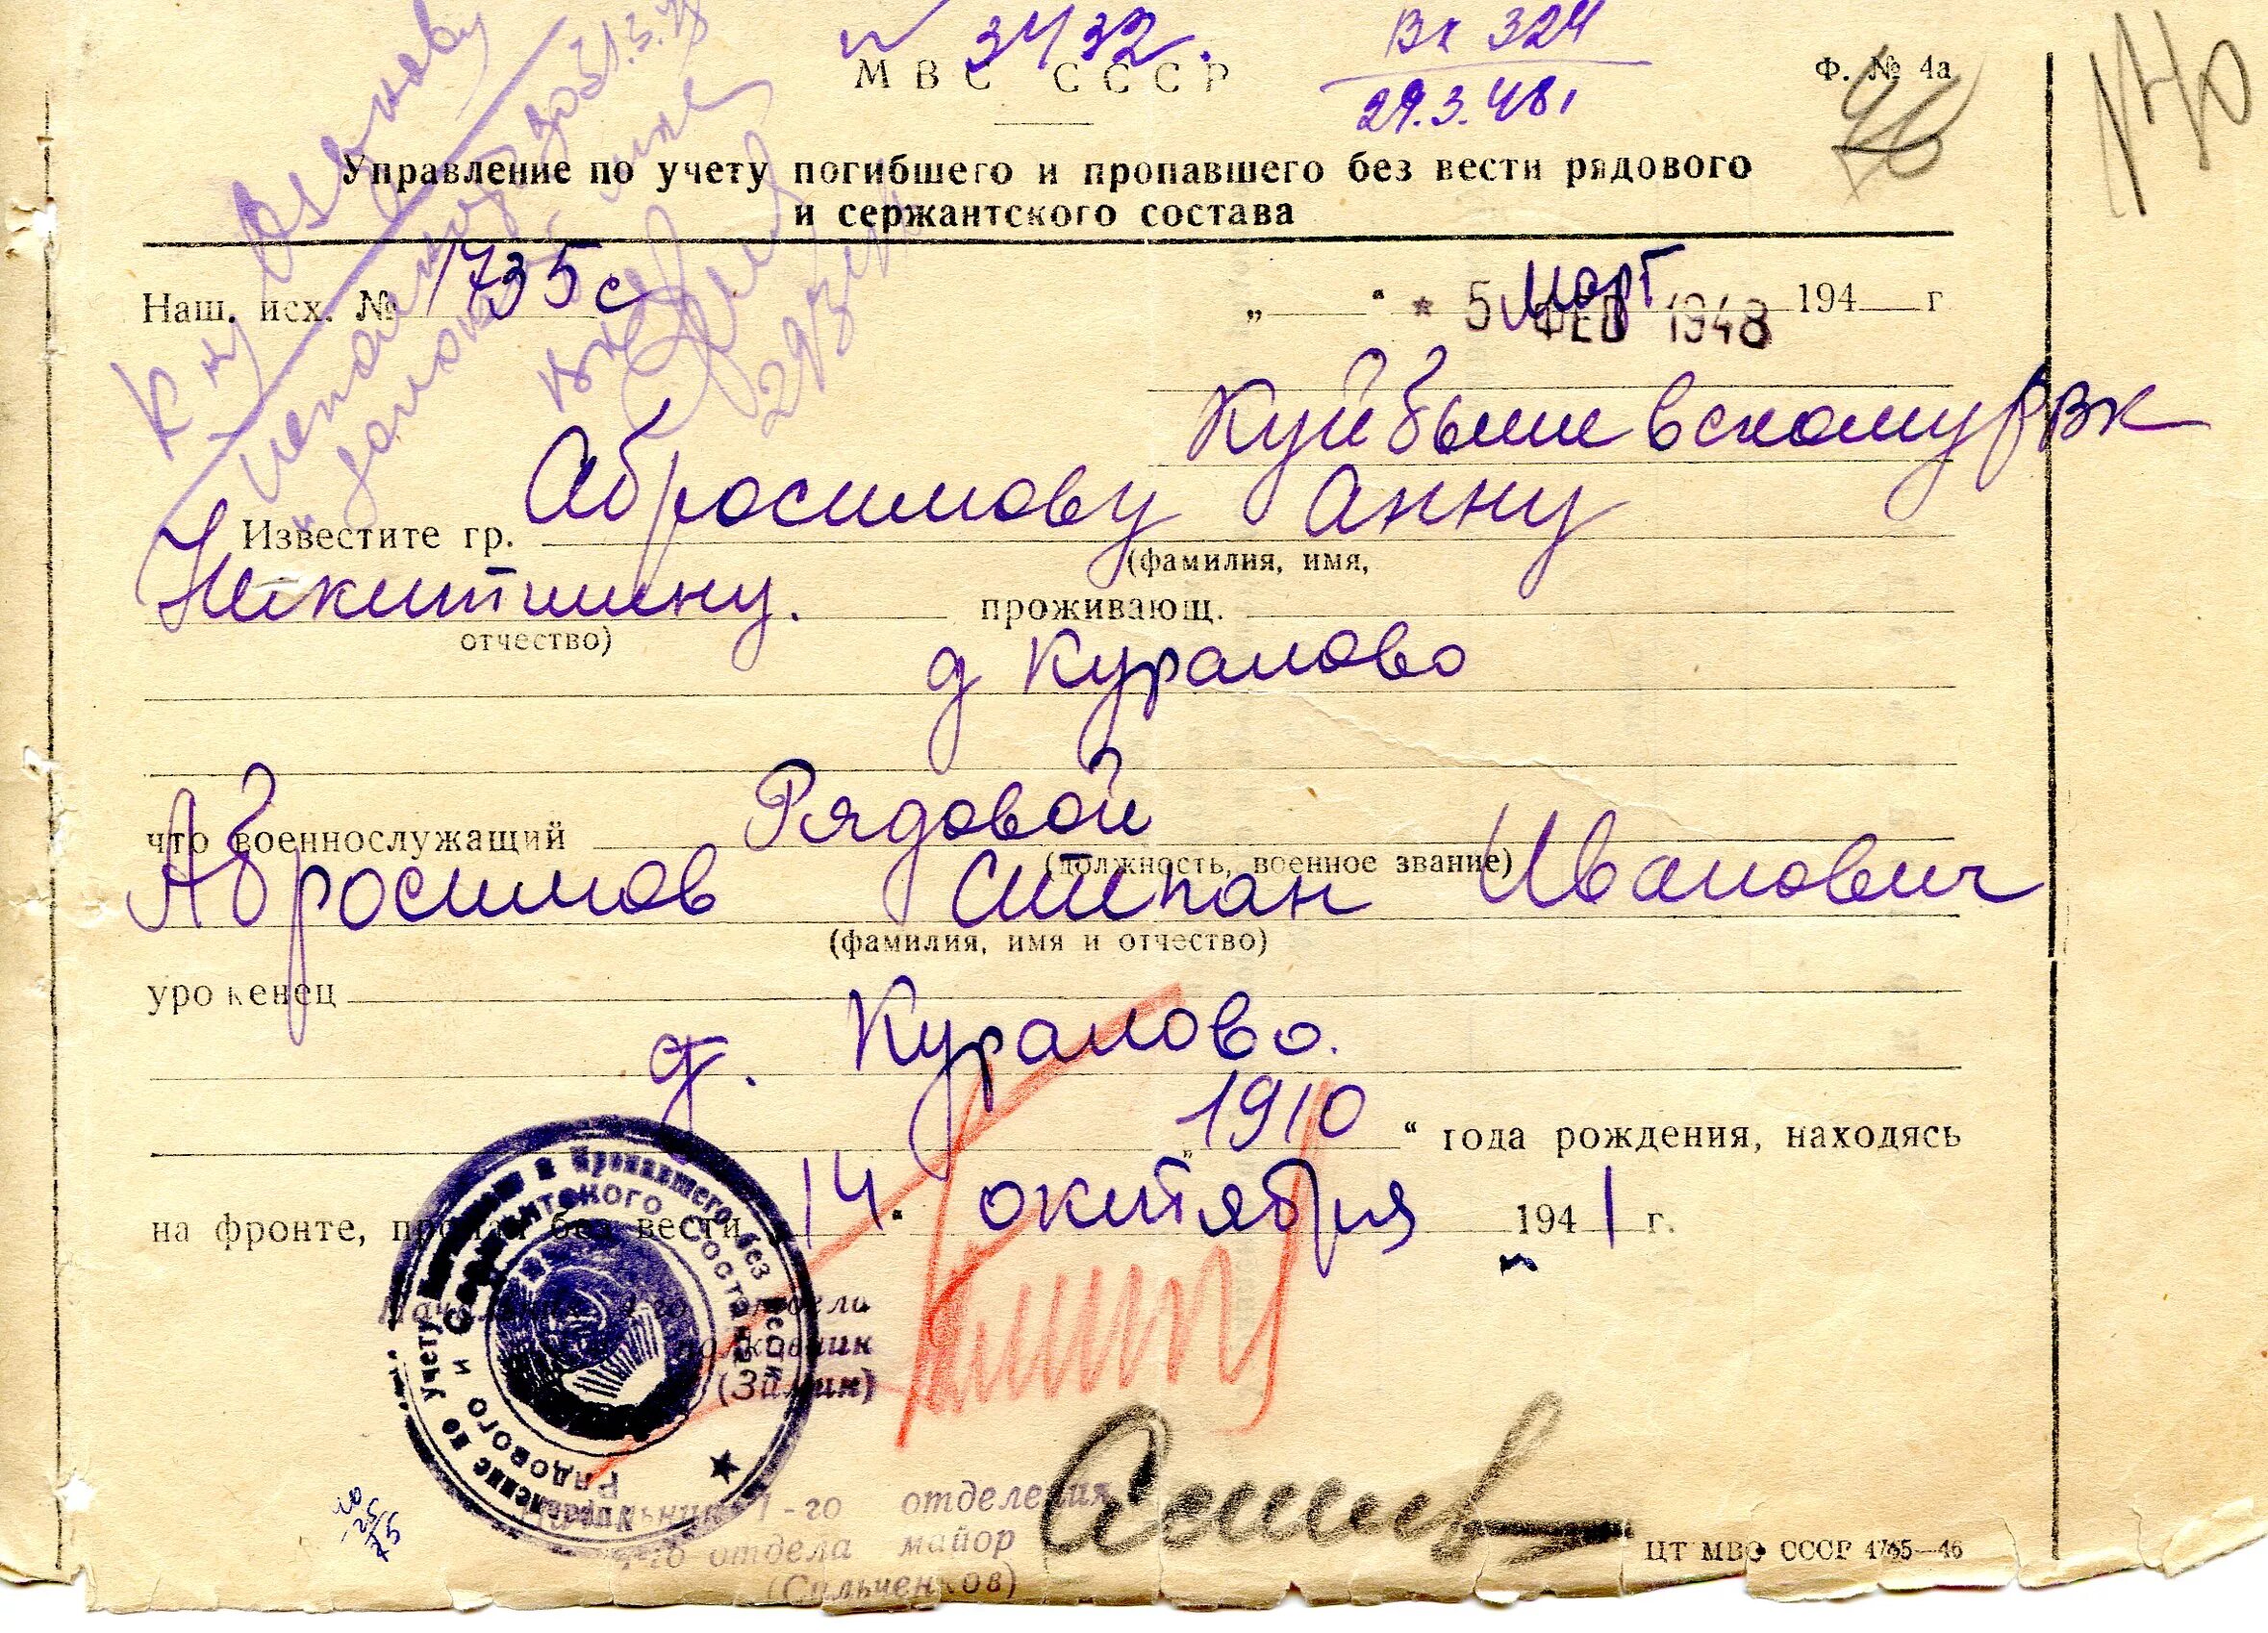 № 3432.
Вх 324
29.3.48 г
МВС СССР
Ф. № 4а
Управление по учету погибшего и пропавшего без вести рядового
и сержантского состава
Наш. исх. № 1735с
„ “ * 5 март ФЕВ 1948 194 г
Куйбышевскому РВК
Известите гр. Абросимову Анну
(фамилия, имя,
Никитишну. проживающ.
отчество)
д Курапово
что военнослужащий Рядовой
(должность, военное звание)
Абросимов Степан Иванович
(фамилия, имя и отчество)
уроженец
д. Курапово.
„1910“ года рождения, находясь
на фронте, пропал без вести 14. октября 1941 г.
Начальник 1-го отдела
полковник
(Зимин)
Управление по учету погибшего и пропавшего без вести
Рядового и Сержантского Состава
Начальник 1-го отделения
1-го отдела майор
(Сильченков)
10
25
75
ЦТ МВС СССР 4765—46